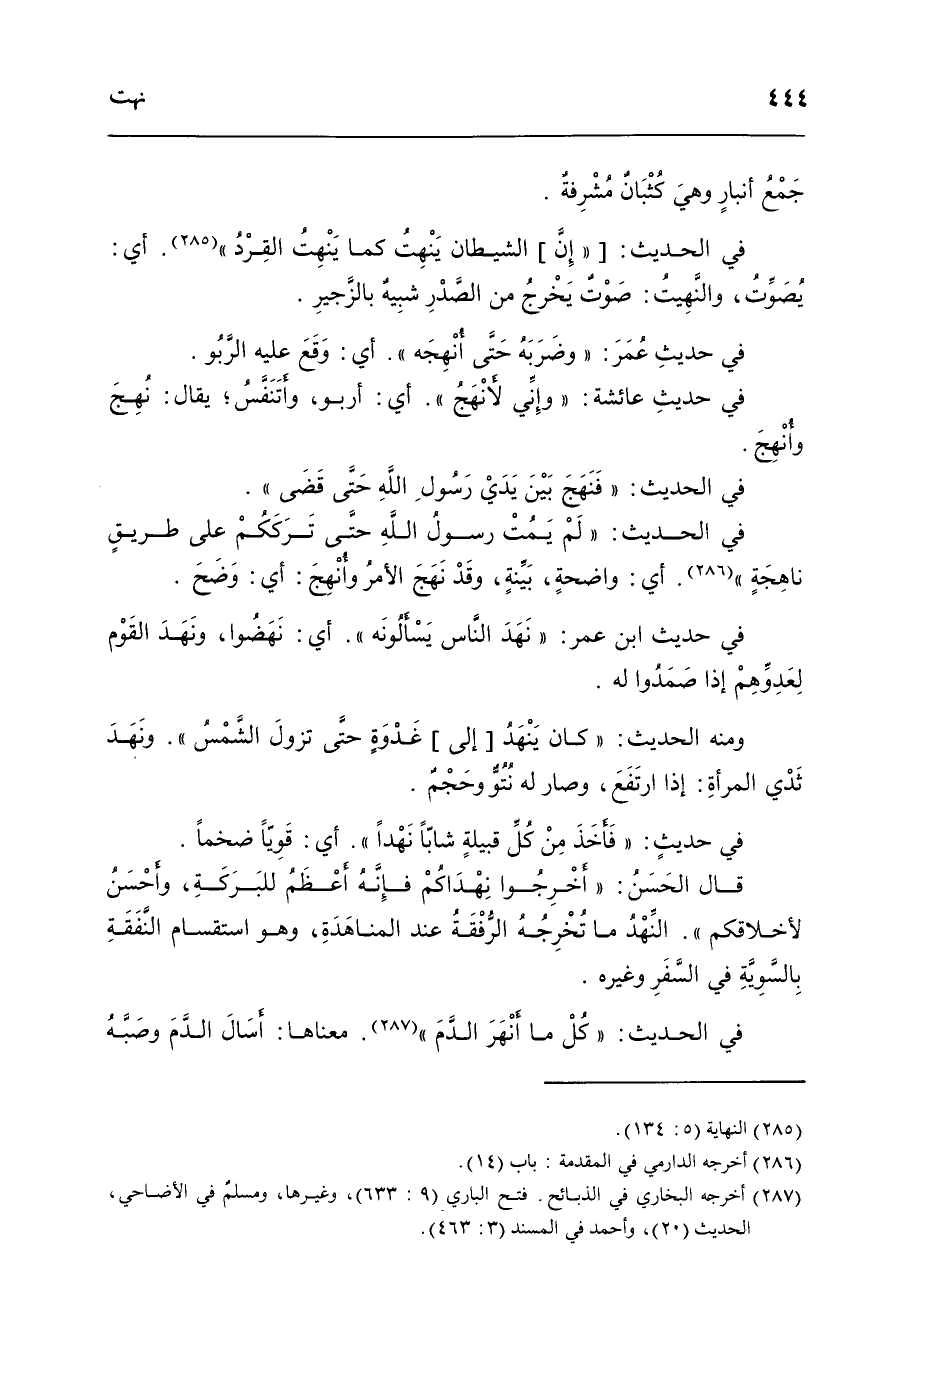 ٤٤٤
نهت
جَمْعُ أنبارٍ وهيَ كُثْبَانٌ مُشْرِفةٌ .
في الحديث: [ « إِنَّ ] الشيطان يَنْهِتُ كما يَنْهِتُ القِرْدُ »(٢٨٥). أي:
يُصَوِّتُ، والنَّهِيتُ: صَوْتٌ يَخْرجُ من الصَّدْرِ شبيهٌ بالزَّحِيرِ .
في حديثِ عُمَرَ: « وضَرَبَهُ حَتَّى أُنْهِجَه ». أي: وَقَعَ عليه الرَّبُو .
في حديثِ عائشة: « وإِنِّي لأَنْهَجُ ». أي: أربو، وأَتَنَفَّسُ؛ يقال: نُهِجَ
وأُنْهِجَ .
في الحديث: « فَنَهَجَ بَيْنَ يَدَيْ رَسُولِ اللَّهِ حَتَّى قَضَى » .
في الحديث: « لَمْ يَمُتْ رسولُ اللَّهِ حتَّى تَرَكَكُمْ على طريقٍ
ناهِجَةٍ »(٢٨٦). أي: واضحةٍ، بَيِّنةٍ، وقَدْ نَهَجَ الأمرُ وأُنْهِجَ: أي: وَضَحَ .
في حديث ابن عمر: « نَهَدَ النَّاس يَسْأَلُونَه ». أي: نَهَضُوا، ونَهَدَ القَوْم
لِعَدِوِّهِمْ إذا صَمَدُوا له .
ومنه الحديث: « كان يَنْهَدُ [ إلى ] غَدْوَةٍ حتَّى تزولَ الشَّمْسُ ». ونَهَدَ
ثَدْي المرأةِ: إذا ارتَفَعَ، وصار له نُتُوٌّ وحَجْمٌ .
في حديثٍ: « فَأَخَذَ مِنْ كُلِّ قبيلةٍ شابّاً نَهْداً ». أي: قَوِيّاً ضخماً .
قال الحَسَنُ: « أَخْرِجُوا نِهْدَاكُمْ فإِنَّهُ أَعْظَمُ للبَرَكَةِ، وأَحْسَنُ
لأخلاقكم ». النِّهْدُ ما تُخْرِجُهُ الرُّفْقَةُ عند المناهَدَةِ، وهو استقسام النَّفَقَةِ
بِالسَّوِيَّةِ في السَّفَرِ وغيره .
في الحديث: « كُلْ ما أَنْهَرَ الدَّمَ »(٢٨٧). معناها: أَسَالَ الدَّمَ وصَبَّهُ
(٢٨٥) النهاية (٥: ١٣٤).
(٢٨٦) أخرجه الدارمي في المقدمة : باب (١٤).
(٢٨٧) أخرجه البخاري في الذبائح. فتح الباري (٩ : ٦٣٣)، وغيرها، ومسلمٌ في الأضاحي،
الحديث (٢٠)، وأحمد في المسند (٣: ٤٦٣).